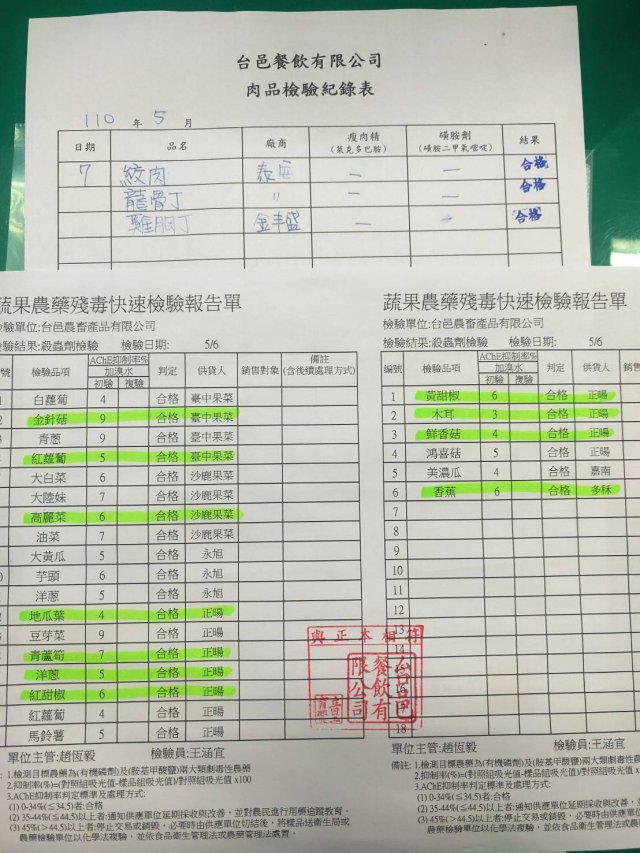 台邑餐飲有限公司
肉品檢驗紀錄表
110 年 5 月
日期 品名 廠商 瘦肉精 (萊克多巴胺) 磺胺劑 (磺胺二甲氧嘧啶) 結果
7 絞肉 泰安 — — 合格
龍骨丁 〃 — — 合格
雞胸丁 金丰盛 — — 合格
蔬果農藥殘毒快速檢驗報告單
檢驗單位:台邑農畜產品有限公司
檢驗結果:殺蟲劑檢驗 檢驗日期: 5/6
號 檢驗品項 AChE抑制率% 加溴水 初驗 複驗 判定 供貨人 銷售對象 備註 (含後續處理方式)
白蘿蔔 4 合格 臺中果菜
金針菇 9 合格 臺中果菜
青蔥 9 合格 臺中果菜
紅蘿蔔 5 合格 臺中果菜
大白菜 6 合格 沙鹿果菜
大陸妹 7 合格 沙鹿果菜
高麗菜 6 合格 沙鹿果菜
油菜 7 合格 沙鹿果菜
大黃瓜 5 合格 永旭
芋頭 6 合格 永旭
洋蔥 5 合格 永旭
地瓜葉 4 合格 正暘
豆芽菜 9 合格 正暘
青蘆筍 7 合格 正暘
洋蔥 5 合格 正暘
紅甜椒 6 合格 正暘
紅蘿蔔 4 合格 正暘
馬鈴薯 5 合格 正暘
單位主管:趙恆毅 檢驗員:王涵宜
: 1.檢測目標農藥為(有機磷劑)及(胺基甲酸鹽)兩大類劇毒性農藥
2.抑制率(%)=(對照組吸光值-樣品組吸光值)/對照組吸光值 x100
3.AChE抑制率判定標準及處理方式:
(1) 0-34%(≦34.5)者:合格
(2) 35-44%(≦44.5)以上者:通知供應單位延期採收與改善,並對農民進行用藥追蹤教育。
(3) 45%(>44.5)以上者:停止交易或銷毀,必要時由供應單位切結後,將樣品送衛生局或
農藥檢驗單位以化學法複驗,並依食品衛生管理法或農藥管理法處置。
蔬果農藥殘毒快速檢驗報告單
檢驗單位:台邑農畜產品有限公司
檢驗結果:殺蟲劑檢驗 檢驗日期: 5/6
編號 檢驗品項 AChE抑制率% 加溴水 初驗 複驗 判定 供貨人 銷
1 黃甜椒 6 合格 正暘
2 木耳 3 合格 正暘
3 鮮香菇 4 合格 正暘
4 鴻喜菇 5 合格 正暘
5 美濃瓜 4 合格 嘉南
6 香蕉 6 合格 多秝
7
8
9
10
11
12
13
14
15
16
17
18
單位主管:趙恆毅 檢驗員:王涵宜
備註: 1.檢測目標農藥為(有機磷劑)及(胺基甲酸鹽)兩大類劇毒
2.抑制率(%)=(對照組吸光值-樣品組吸光值)/對照組吸光
3.AChE抑制率判定標準及處理方式:
(1) 0-34%(≦34.5)者:合格
(2) 35-44%(≦44.5)以上者:通知供應單位延期採收與改善,並
(3) 45%(>44.5)以上者:停止交易或銷毀,必要時由供應單位切
農藥檢驗單位以化學法複驗,並依食品衛生管理法或農
與正本相符
台邑餐飲有限公司